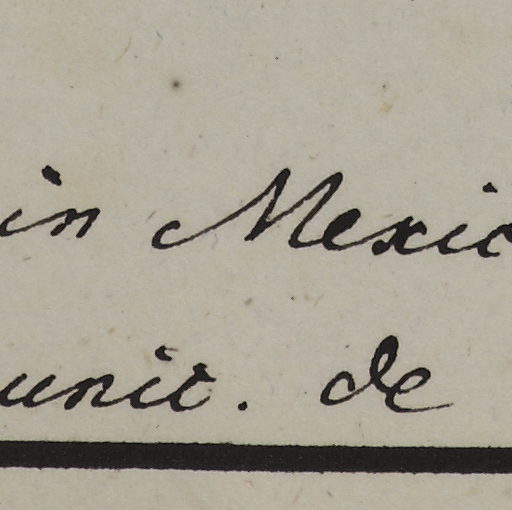 in Mexic
unic. de